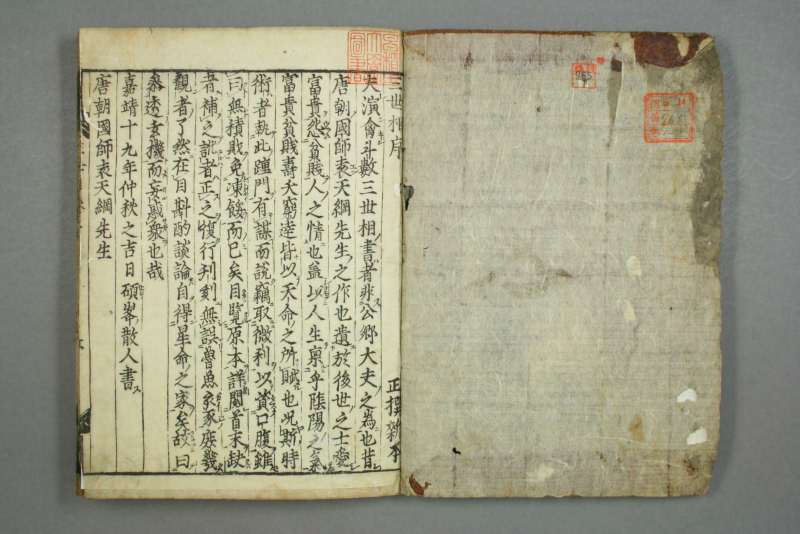 三世相序
正撰新本
夫演禽斗數三世相書者非公鄉大夫之為也昔
唐朝國師袁天綱先生之作也遺放後世之士愛
富貴怨貧賤人之情也盖以人生禀乎陰陽之氣
富貴貧賤壽夭窮達皆以天命之所賦也况斯時
術者執此踵門有謀而說竊取微利以資口腹雖
曰無積賊免凍餒而已矣目覽原本詳闕首末缺
者補之訛者正之復行刊刻無誤魯魚亥豕庶幾
觀者了然在目斟酌談論自得星命之家矣故曰
泰透玄機而妄惑衆也哉
嘉靖十九年仲秋之吉日碩峯散人書
唐朝國師袁天綱先生